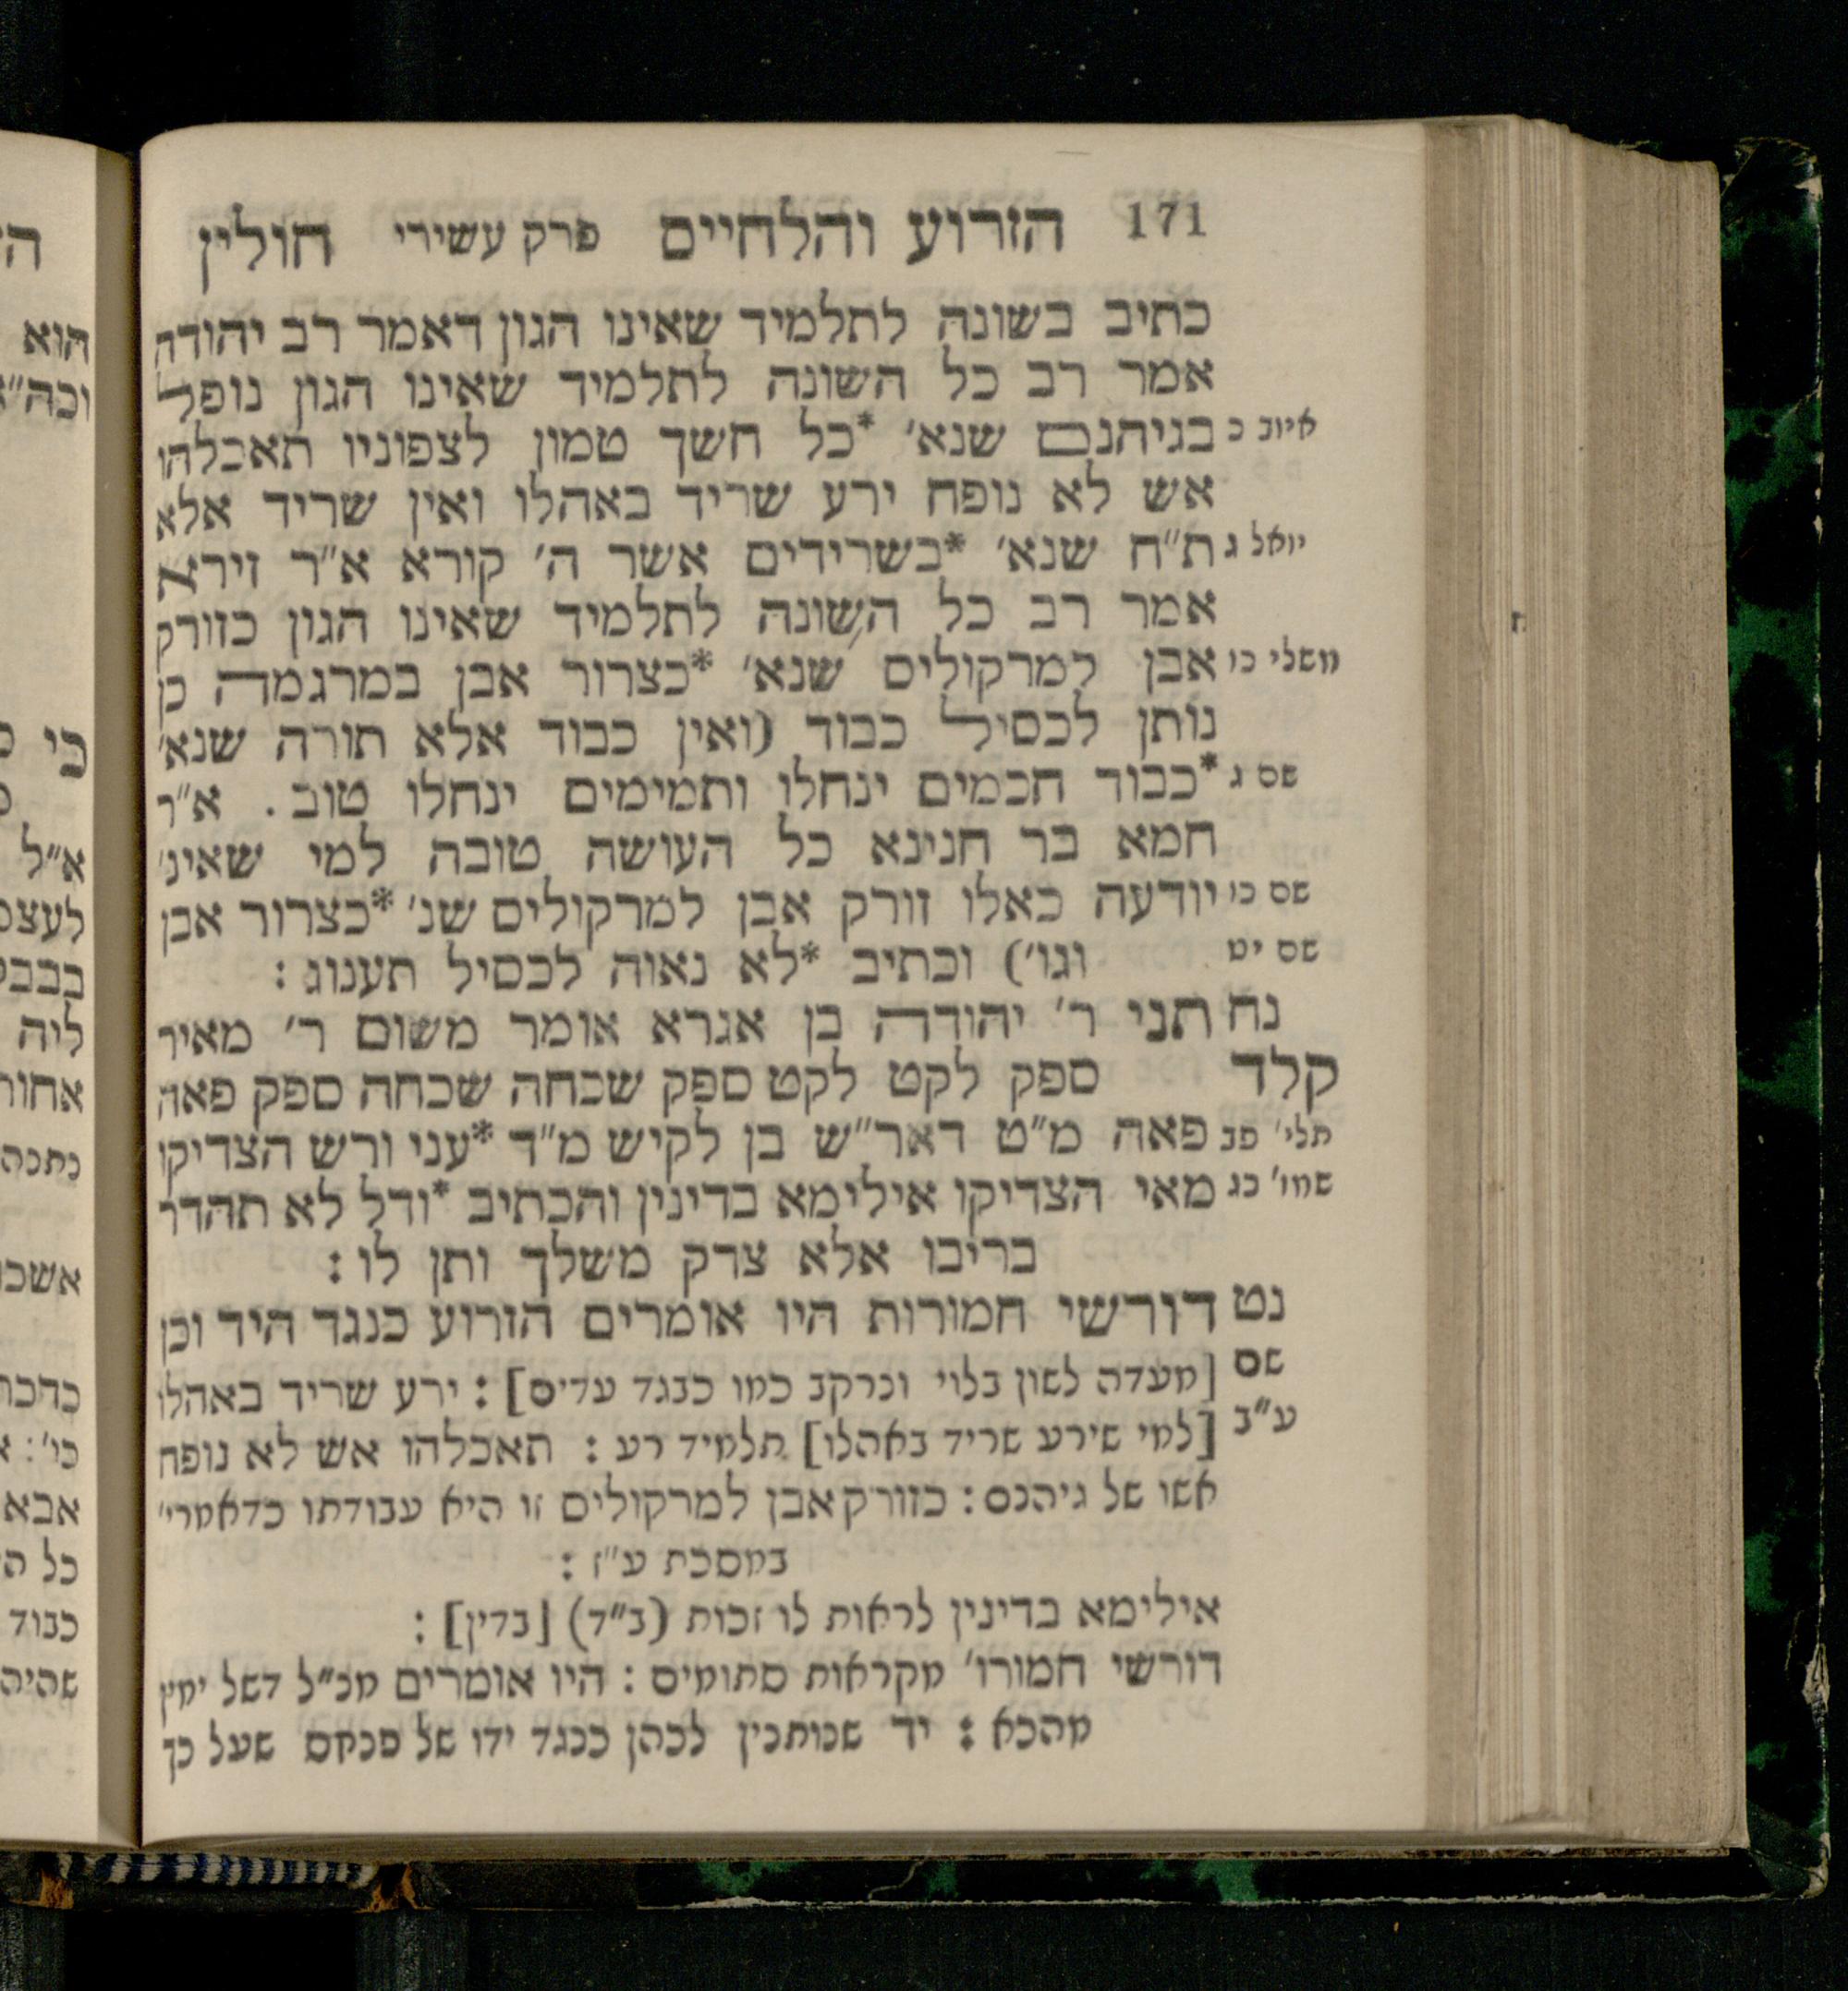 171 הזרוע והלחיים פרק עשירי חולין
כתיב בשונה לתלמיד שאינו הגון דאמר רב יהודה
אמר רב כל השונה לתלמיד שאינו הגון נופל
איוב כ בגיהנם שנא׳ *כל חשך טמון לצפוניו תאכלהו
אש לא נופח ירע שריד באהלו ואין שריד אלא
יואל ג ת״ח שנא׳ *בשרידים אשר ה׳ קורא א״ר זירא
אמר רב כל השונה לתלמיד שאינו הגון כזורק
משלי כו אבן למרקולים שנא׳ *כצרור אבן במרגמה כן
נותן לכסיל כבוד (ואין כבוד אלא תורה שנא׳
שם ג *כבוד חכמים ינחלו ותמימים ינחלו טוב. א״ר
חמא בר חנינא כל העושה טובה למי שאינ׳
שם כו יודעה כאלו זורק אבן למרקולים שנ׳ *כצרור אבן
שם יט וגו׳) וכתיב *לא נאוה לכסיל תענוג:
נח תני ר׳ יהודה בן אגרא אומר משום ר׳ מאיר
קלד ספק לקט לקט ספק שכחה שכחה ספק פאה
תלי׳ פב פאה מ״ט דאר״ש בן לקיש מ״ד *עני ורש הצדיקו
שמו׳ כג מאי הצדיקו אילימא בדינין והכתיב *ודל לא תהדר
בריבו אלא צדק משלך ותן לו:
נט דורשי חמורות היו אומרים הזרוע כנגד היד וכן
שם [מעדה לשון בלוי ונרקב כמו כבגד עדים]: ירע שריד באהלו
ע״ב [למי שירע שריד באהלו] תלמיד רע: תאכלהו אש לא נופח
אשו של גיהנם: כזורק אבן למרקולים זו היא עבודתו כדאמרי׳
במסכת ע״ז:
אילימא בדינין לראות לו זכות (ב״ד) [בדין]:
דורשי חמורו׳ מקראות סתומים: היו אומרים מכ״ל דשל ימין
מהכא: יד שנותנין לכהן כנגד ידו של פנחס שעל כך